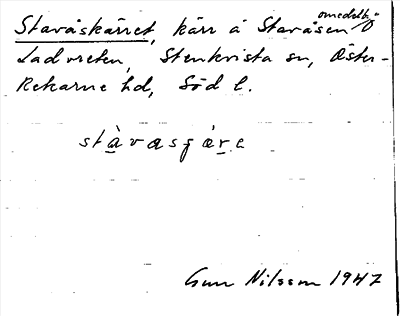 Stavåskärret, kärr å Stavåsen omedelb. ö
Ladvreten, Stenkvista sn, Öster-
Rekarne hd, Söd l.
stàvasçære
Gun Nilsson 1947